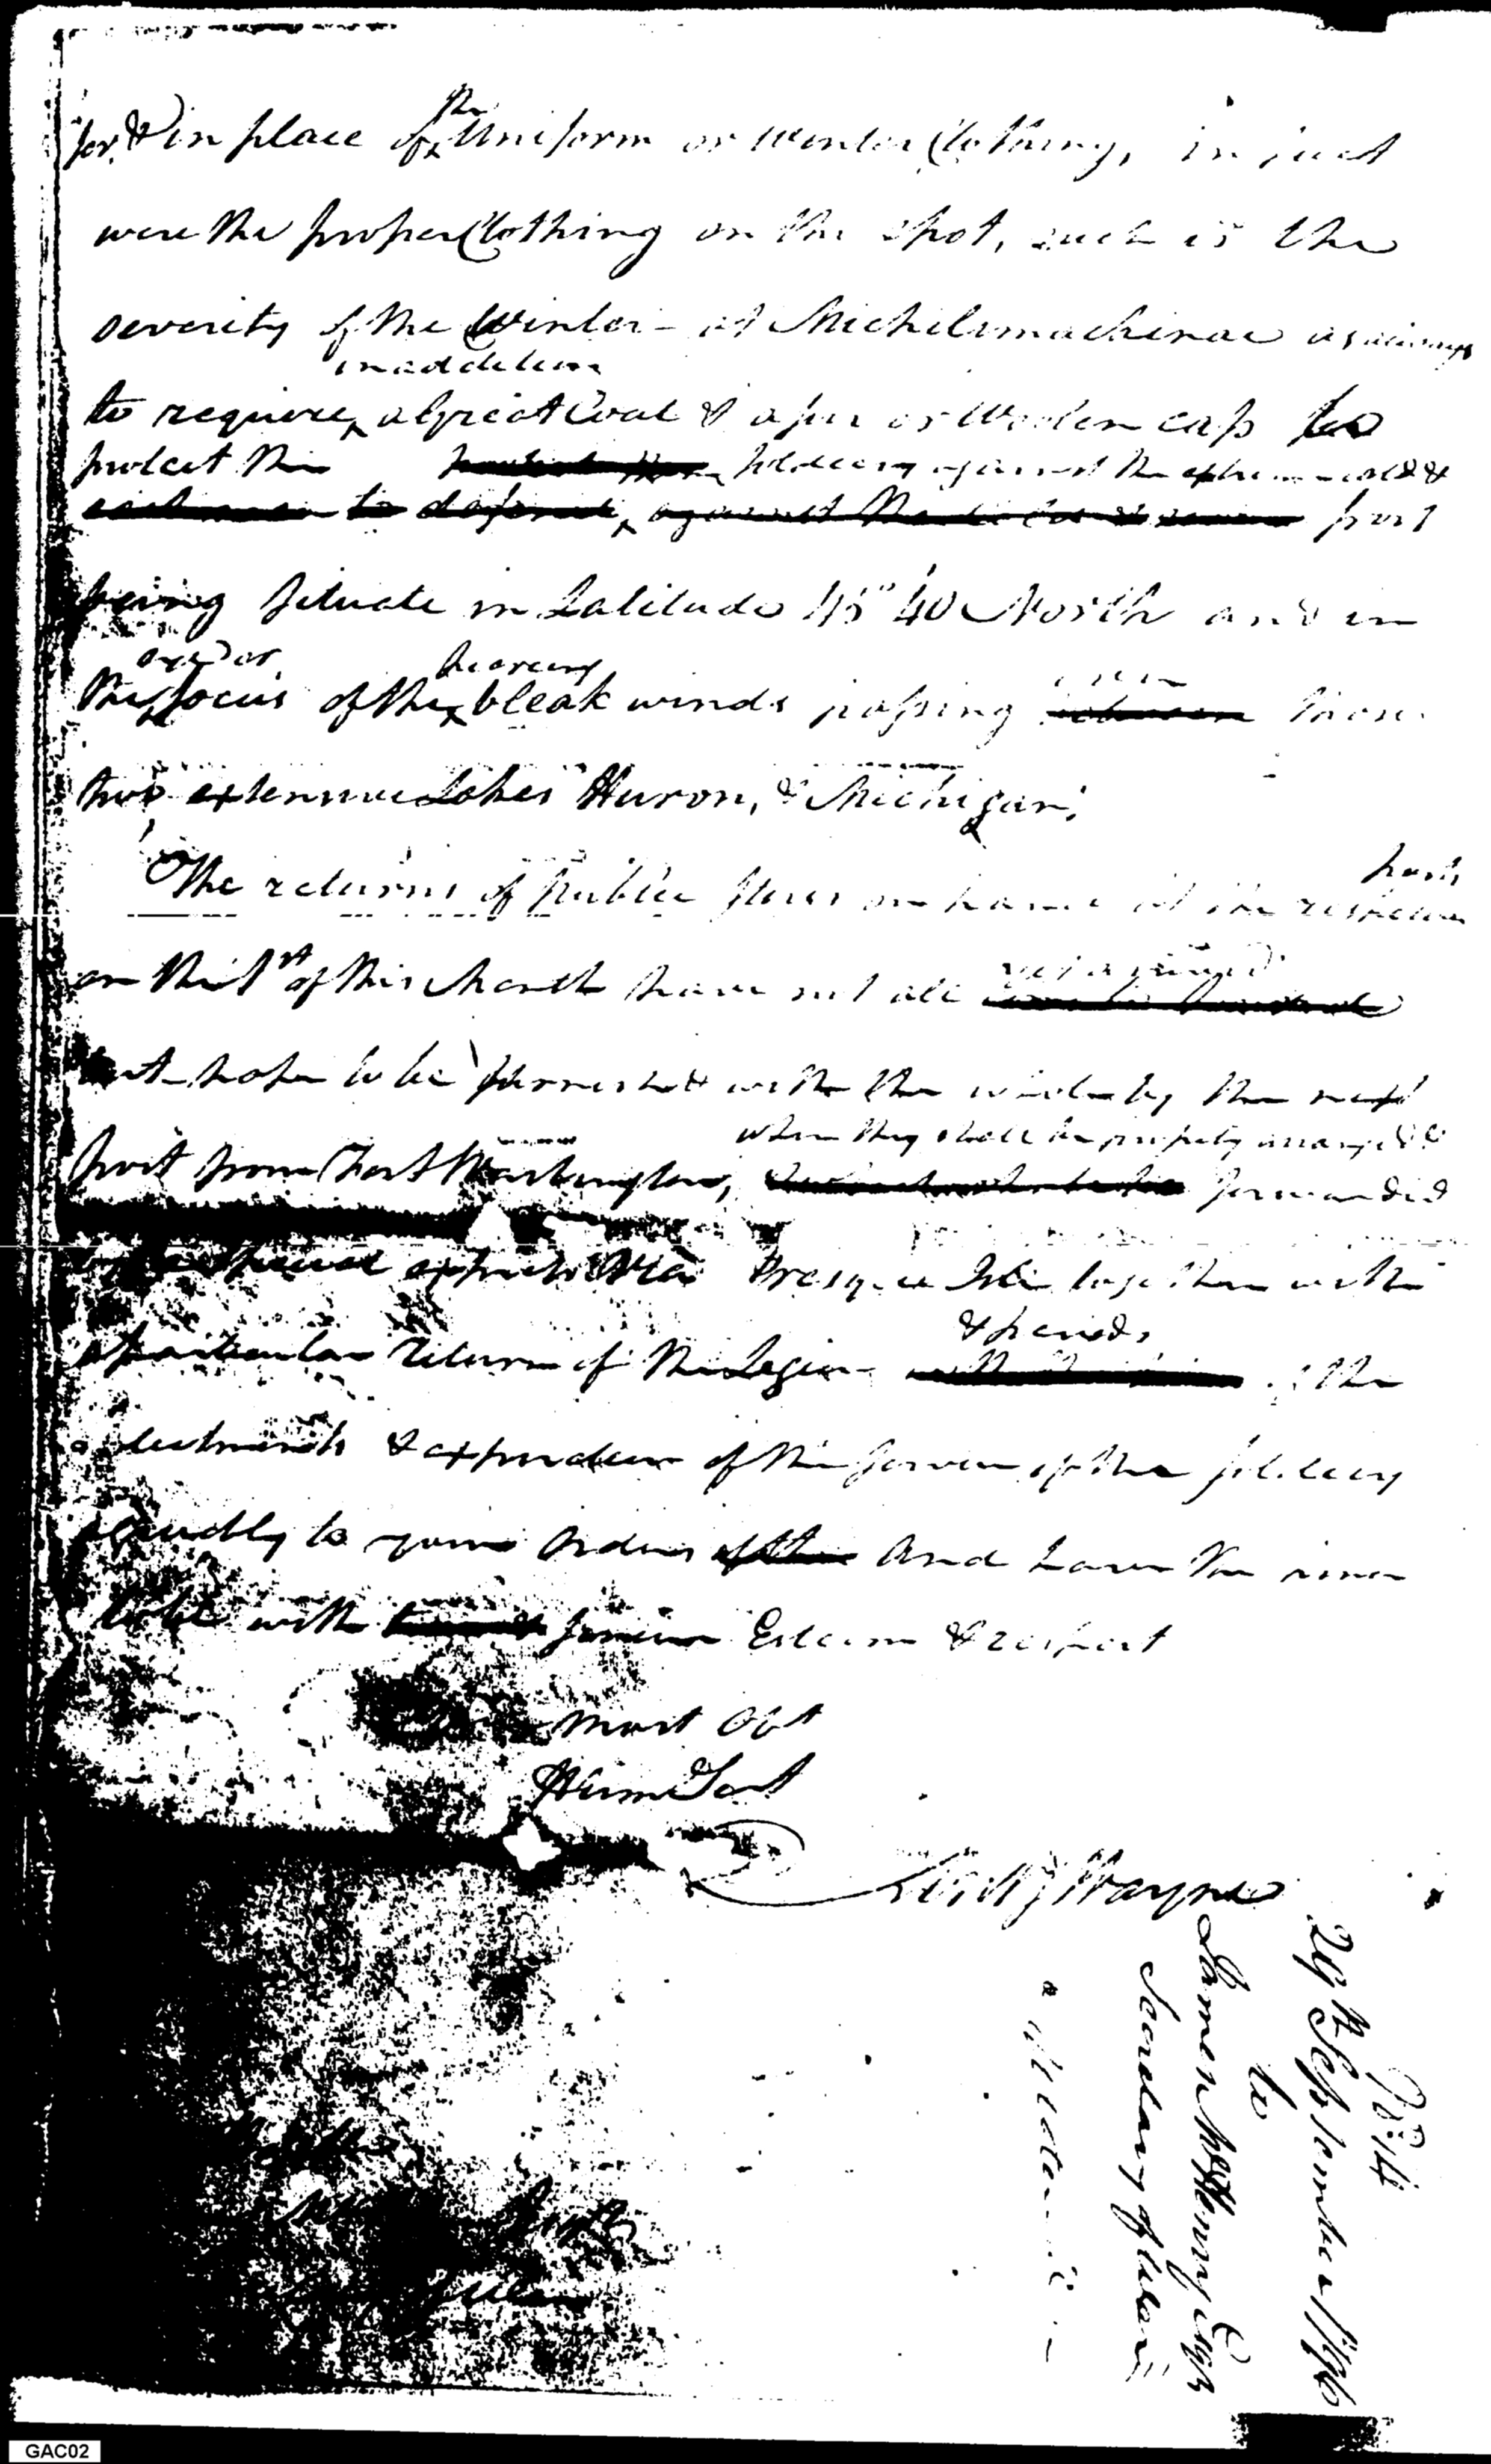 for, & in place of the Uniform or Winter Clothing, in fact
were the proper Clothing on the spot, such is the
severity of the Winter at Michilimackinac as always
in addition
to require a great Coat & a fur or Woolen cap to
protect the soldiery against the extreme cold &
to defend against frost
being situate in Latitude 45° 40' North and in
the focus of the bleak winds passing those
two extensive Lakes Huron, & Michigan;
The returns of Public stores on hand at the respective posts
on the 1st of this Month have not all yet arrived
but hope to be furnished with the whole by the next
when they shall be properly arranged &
post from Fort Washington, forwarded
by a special express via Presque Isle together with
& periods
a particular return of the Legion of the
enlistments & expiration of the service of the soldiery
agreeably to your orders and have the honor
to be with Esteem & respect
most Obt
Huml Sert
Anty Wayne
No. 4
29th September 1796
to
James McHenry Esqr
Secretary of War
GAC02